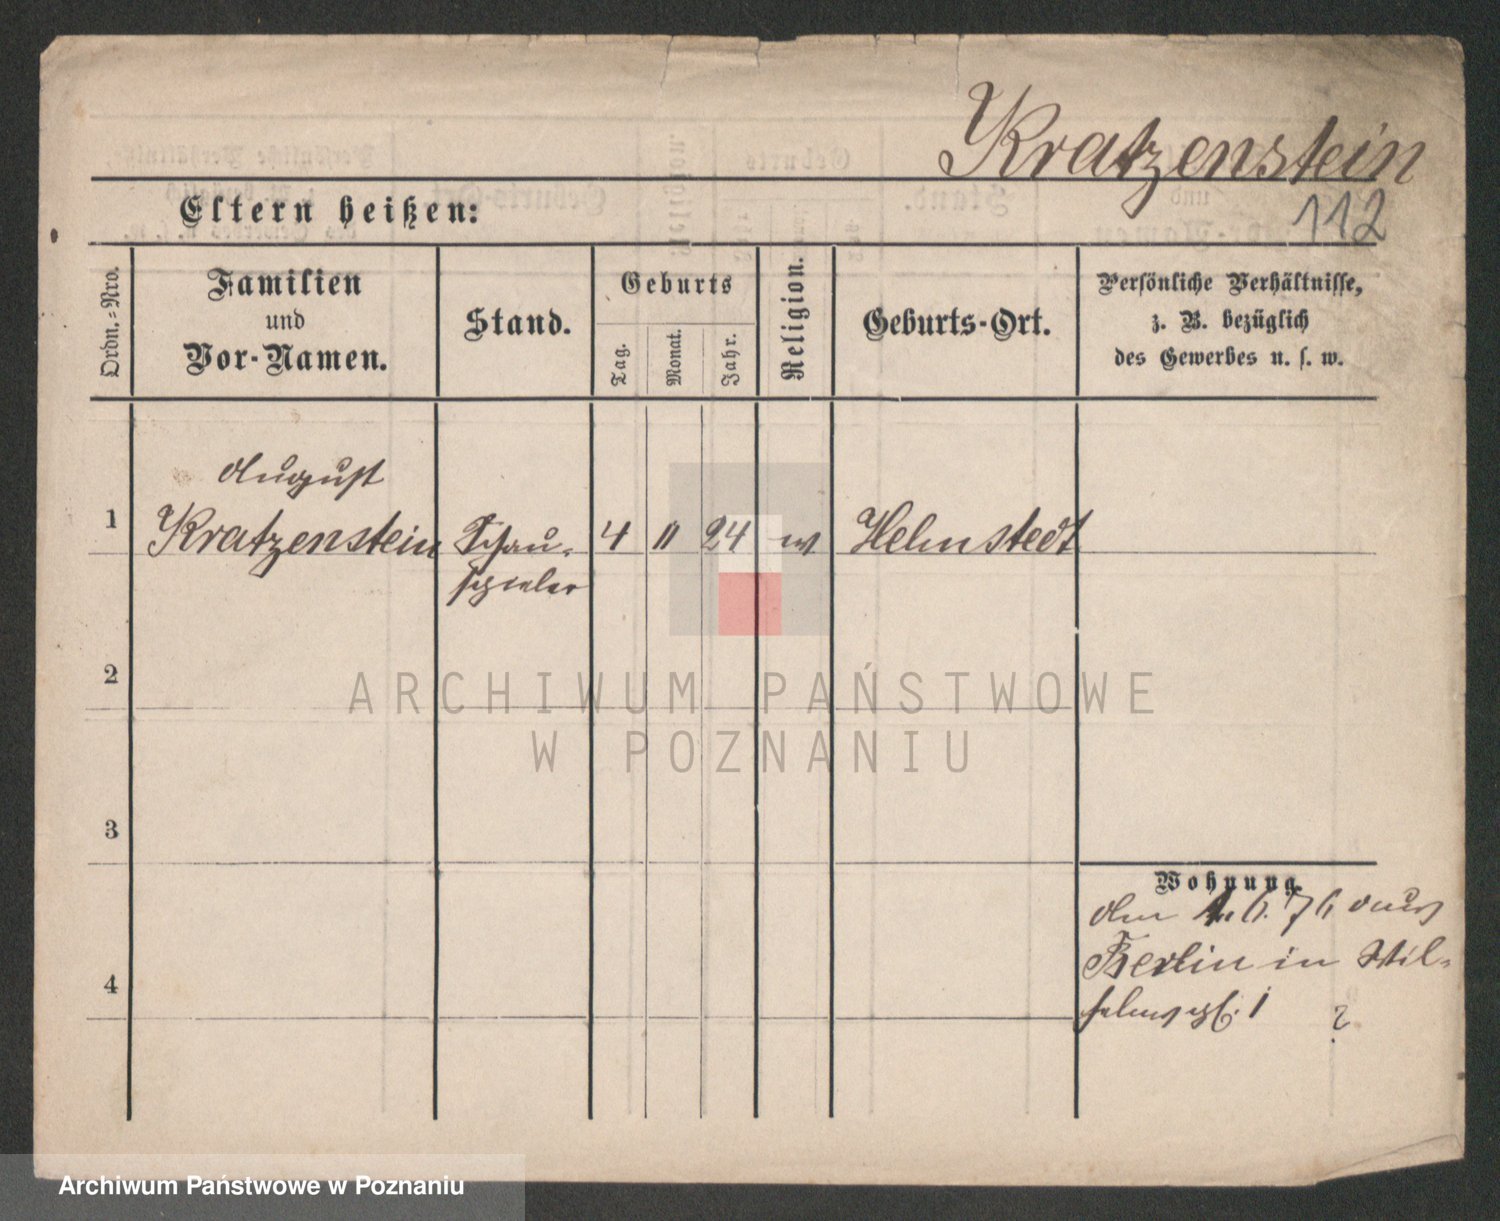 Kratzenstein
112
Eltern heißen:
Ordn.-Nro.
Familien
und
Vor-Namen.
Stand.
Geburts
Tag.
Monat.
Jahr.
Religion.
Geburts-Ort.
Persönliche Verhältnisse,
z. B. bezüglich
des Gewerbes u. s. w.
August
1 Kratzenstein Schau- 4 11 24 Helmstedt
spieler
2
3
4
Wohnung.
6. 76 aus
Berlin in Wil-
helmspl. 1 ?
ARCHIWUM PAŃSTWOWE
W POZNANIU
Archiwum Państwowe w Poznaniu